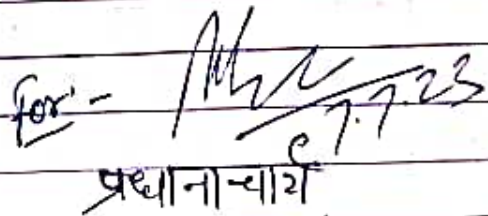 for:-
7.7.23
प्रधानाचार्य